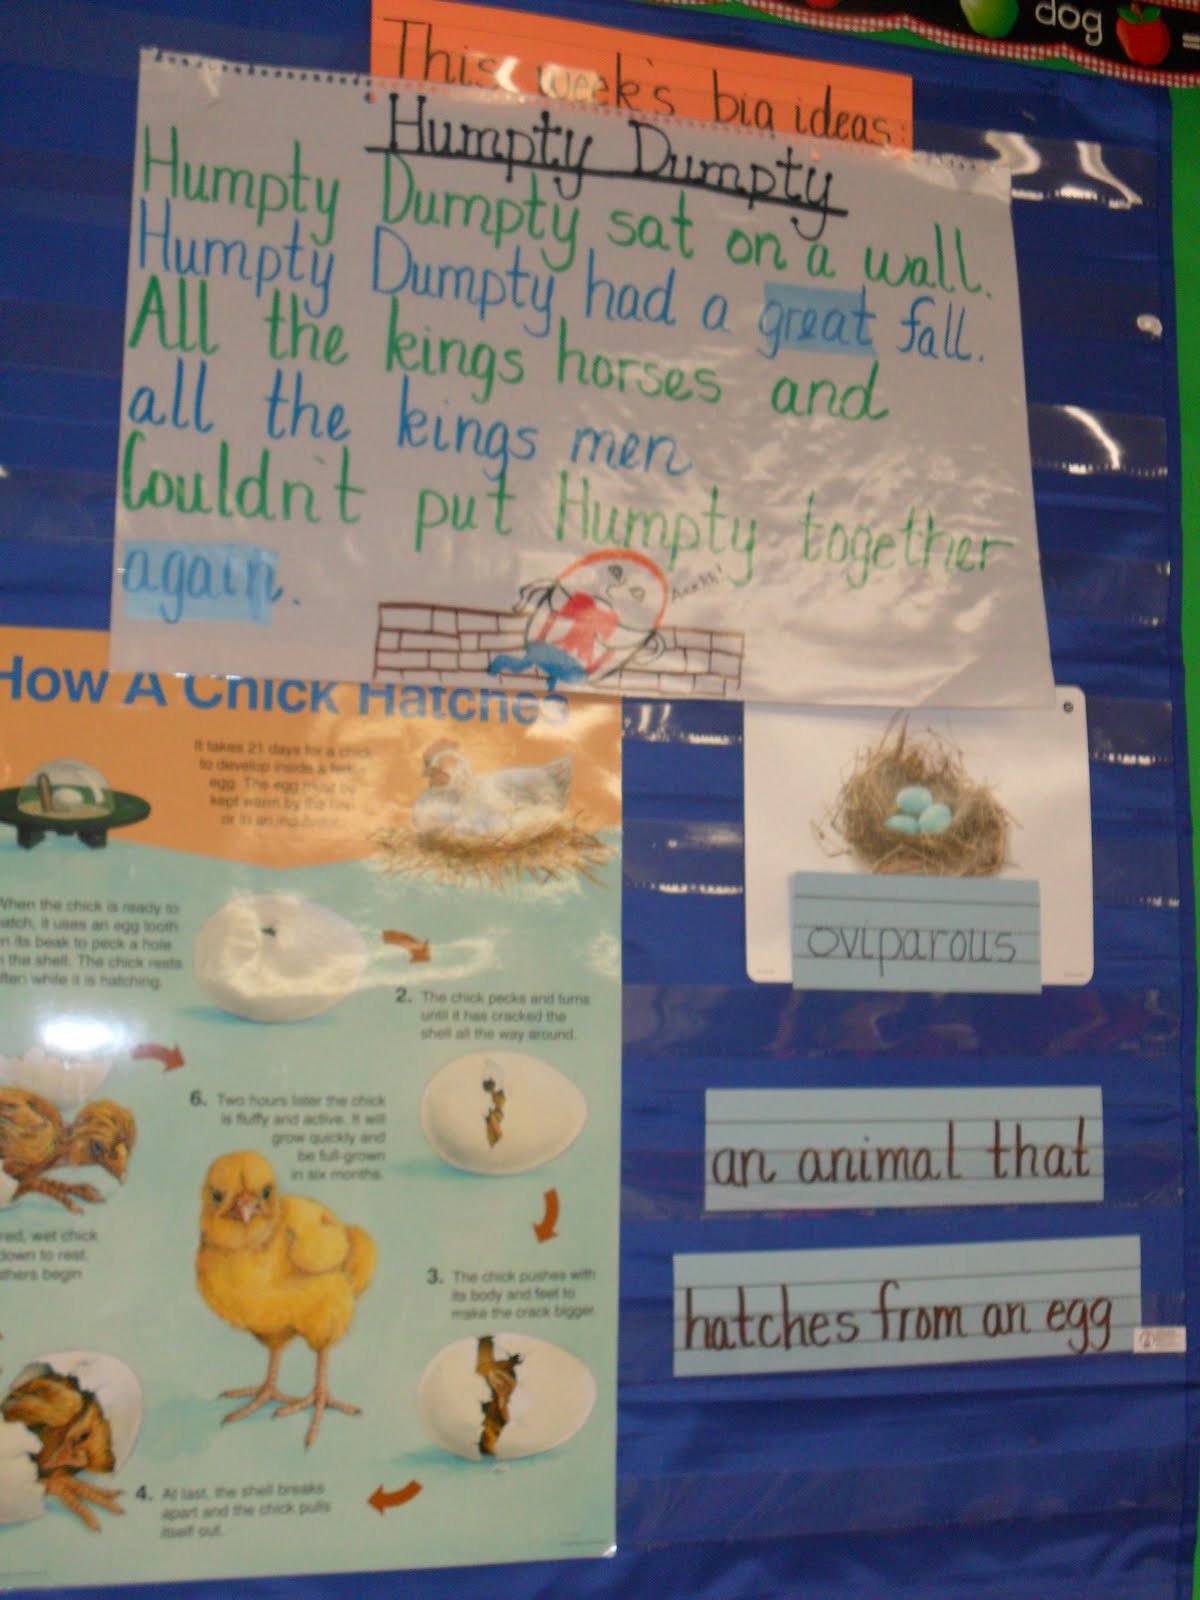 dog =
This week's big ideas:
Humpty Dumpty
Humpty Dumpty sat on a wall.
Humpty Dumpty had a great fall.
All the kings horses and
all the kings men
Couldn't put Humpty together
again.
Aaahh!
How A Chick Hatches
It takes 21 days for a chick
to develop inside a
egg. The egg must be
kept warm by the hen
or in an incubator.
When the chick is ready to
hatch, it uses an egg tooth
on its beak to peck a hole
in the shell. The chick rests
often while it is hatching.
2. The chick pecks and turns
until it has cracked the
shell all the way around.
6. Two hours later the chick
is fluffy and active. It will
grow quickly and
be full-grown
in six months.
3. The chick pushes with
its body and feet to
make the crack bigger.
wet chick
down to rest.
begin
4. At last, the shell breaks
apart and the chick pulls
itself out.
oviparous
an animal that
hatches from an egg